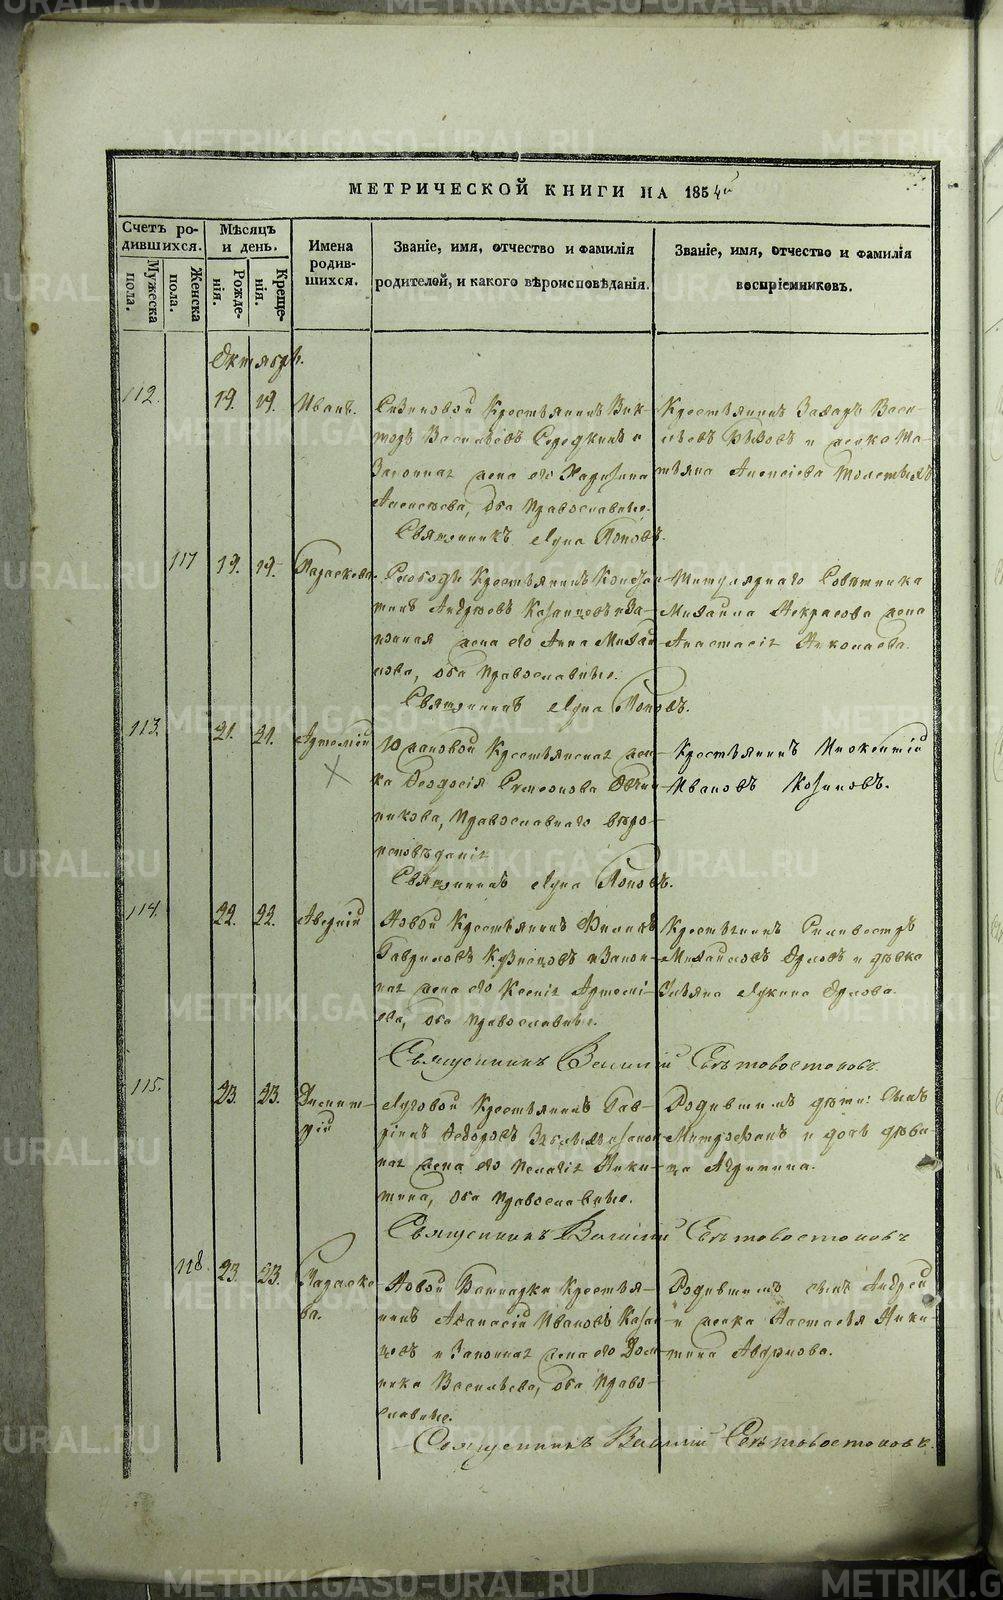 МЕТРИЧЕСКОЙ КНИГИ НА 1854й
Счетъ ро-
дившихся.
Мужеска
пола.
Женска
пола.
Мѣсяцъ
и день.
Рожде-
нія.
Креще-
нія.
Имена
родив-
шихся.
Званіе, имя, отчество и фамилія
родителей, и какого вѣроисповѣданія.
Званіе, имя, отчество и фамилія
воспріемниковъ.
Октябрь.
112. 19. 19. Иванъ.
Крестьянинъ Вик-
торъ Васильевъ и
Законная жена его
Алексѣева, оба Православные.
Священникъ Лука Поповъ.
Крестьянинъ Захаръ Васи-
льевъ и женка Та-
тьяна Алексіева Толстыхъ
117 19. 19. Параскева.
Слободы Крестьянинъ Констан-
тинъ Андреевъ Казанцевъ и За-
конная жена его Анна Михай-
лова, оба Православные.
Священникъ Лука Поповъ.
Титулярнаго Совѣтника
Михаила Некрасова жена
Анастасія Николаева.
113. 21. 21. Артемій
Крестьянская жен-
ка Феодосія Симеонова Овчин-
никова, Православнаго вѣро-
исповѣданія
Священникъ Лука Поповъ.
Крестьянинъ Инокентій
Ивановъ Козиновъ.
114. 22. 22. Аверкій
Новой Крестьянинъ Филипъ
Гавриловъ Кузнецовъ и Закон-
ная жена его Ксенія Артемі-
ева, оба Православные.
Священникъ Василій Свѣтовостоковъ.
Крестьянинъ Силивестръ
Михайловъ Орловъ и дѣвка
Ульяна Лукина Орлова.
115. 23. 23. Димит-
рій
Луговой Крестьянинъ Гав-
ріилъ Федоровъ и закон-
ная жена его Пелагія Ники-
тина, Оба Православные.
Священникъ Василій Свѣтовостоковъ
Родившимъ дѣти: Сынъ
Митрофанъ и дочь дѣви-
ца Агрипина.
118. 23. 23. Параске-
ва.
Новой Крестья-
нинъ Афанасій Ивановъ Казан-
цевъ и Законная жена его Дом-
ника Васильева, оба Право-
славные.
Священникъ Василій Свѣтовостоковъ.
Родившимъ сынъ Андрей
и женка Настасья Ники-
тина
METRIKI.GASO-URAL.RU